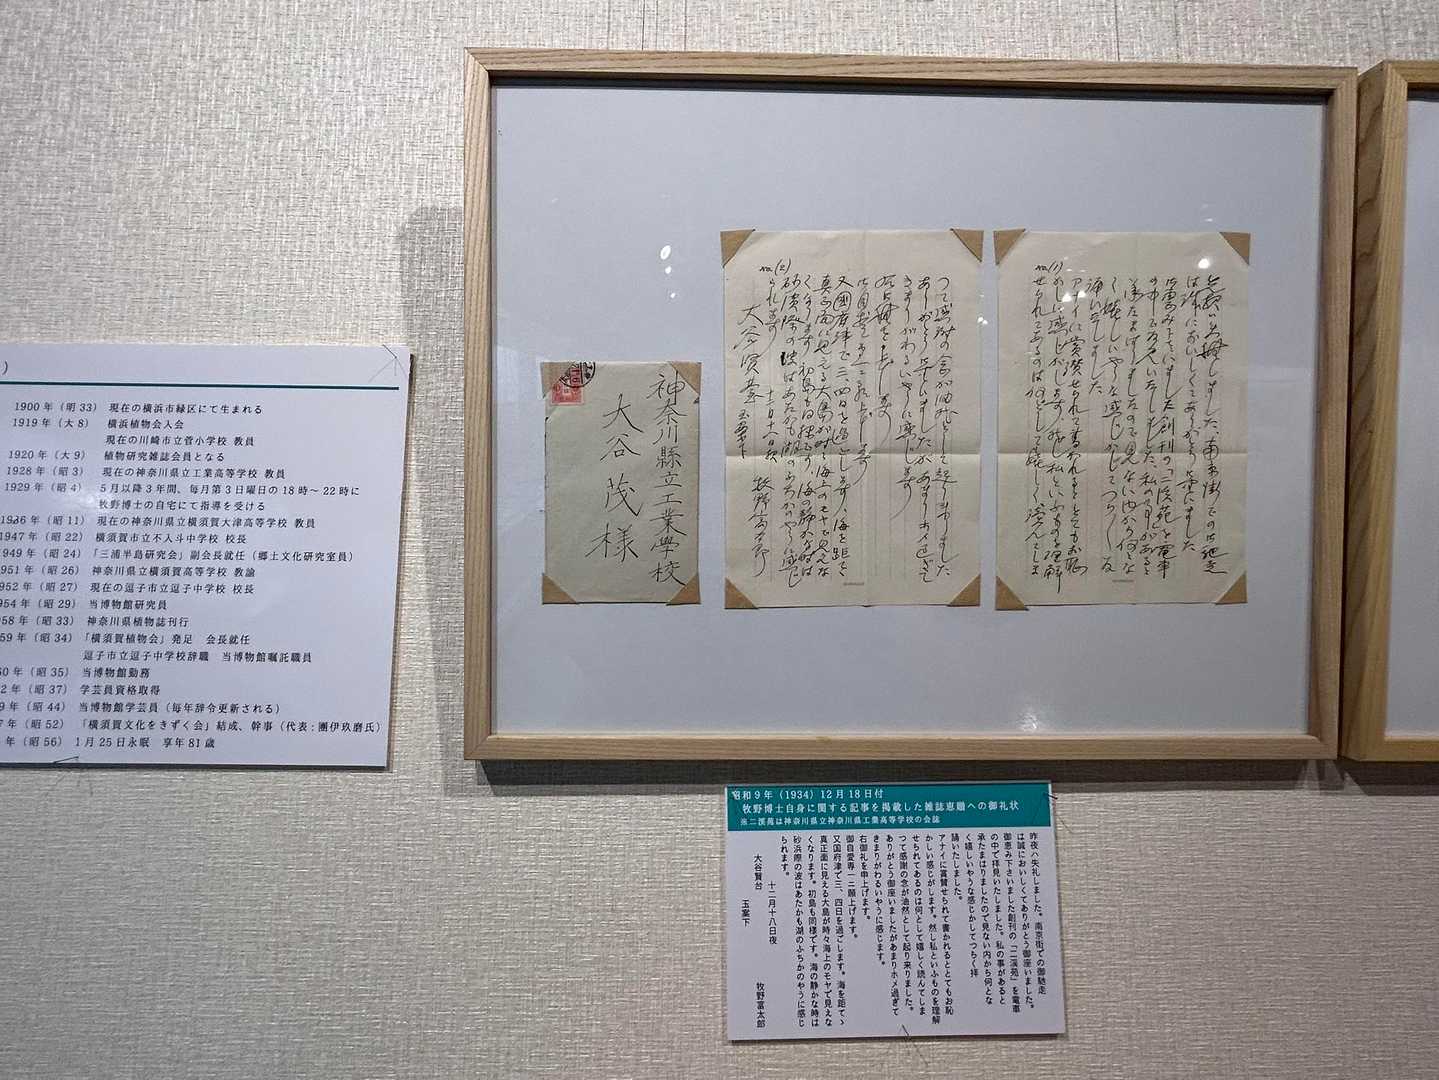 ）
1900年（明33） 現在の横浜市緑区にて生まれる
1919年（大8） 横浜植物会入会
現在の川崎市立菅小学校 教員
1920年（大9） 植物研究雑誌会員となる
1928年（昭3） 現在の神奈川県立工業高等学校 教員
1929年（昭4） 5月以降3年間、毎月第3日曜日の18時～22時に
牧野博士の自宅にて指導を受ける
1936年（昭11） 現在の神奈川県立横須賀大津高等学校 教員
1947年（昭22） 横須賀市立不入斗中学校 校長
949年（昭24）「三浦半島研究会」副会長就任（郷土文化研究室員）
951年（昭26） 神奈川県立横須賀高等学校 教諭
952年（昭27） 現在の逗子市立逗子中学校 校長
954年（昭29） 当博物館研究員
58年（昭33） 神奈川県植物誌刊行
59年（昭34）「横須賀植物会」発足 会長就任
逗子市立逗子中学校辞職 当博物館嘱託職員
60年（昭35） 当博物館勤務
2年（昭37） 学芸員資格取得
9年（昭44） 当博物館学芸員（毎年辞令更新される）
7年（昭52）「横須賀文化をきずく会」結成、幹事（代表：團伊玖磨氏）
年（昭56） 1月25日永眠 享年81歳
神奈川縣立工業學校
大谷茂様
no(1)
昨夜ハ失礼しました、南京街での御馳走
は誠においしくてありがとう御座いました
御恵み下さいました創刊の「二渓苑」を電車
の中で拝見いたしました、私の事があると
承たまはりましたので見ない内から何とな
く嬉しいやうな感じがしてつらつら拝
誦いたしました
アナイに賞賛せられて書かれるととてもお恥
かしい感じがします、然し私といふものを理解
せられてあるのは何として嬉しく読んでしま
no(2)
つて感謝の念が油然として起り来りました
ありがとう御座いましたがあまりホメ過ぎて
きまりがわるいやうに感じます
右御礼を申上げます
御自愛専一ニ願上げます
又国府津で三、四日を過ごします、海を距てゝ
真正面に見える大島が時々海上のモヤで見えな
くなります、初島も同様です、海の静かな時は
砂浜際の波はあたかも湖のふちかのやうに感じ
られます
十二月十八日夜 牧野富太郎
大谷賢台 玉案下
昭和9年（1934）12月18日付
牧野博士自身に関する記事を掲載した雑誌恵贈への御礼状
※二渓苑は神奈川県立神奈川県工業高等学校の会誌
昨夜ハ失礼しました。南京街での御馳走
は誠においしくてありがとう御座いました。
御恵み下さいました創刊の「二渓苑」を電車
の中で拝見いたしました。私の事があると
承たまはりましたので見ない内から何とな
く嬉しいやうな感じかしてつらく拝
誦いたしました。
アナイに賞賛せられて書かれるととてもお恥
かしい感じがします。然し私といふものを理解
せられてあるのは何として嬉しく読んてしま
つて感謝の念が油然として起り来りました。
ありがとう御座いましたがあまりホメ過ぎて
きまりがわるいやうに感じます。
右御礼を申上げます。
御自愛専一ニ願上げます。
又国府津で三、四日を過ごします。海を距てゝ
真正面に見える大島が時々海上のモヤで見えな
くなります。初島も同様です。海の静かな時は
砂浜際の波はあたかも湖のふちかのやうに感じ
られます。
十二月十八日夜
牧野富太郎
大谷賢台 玉案下